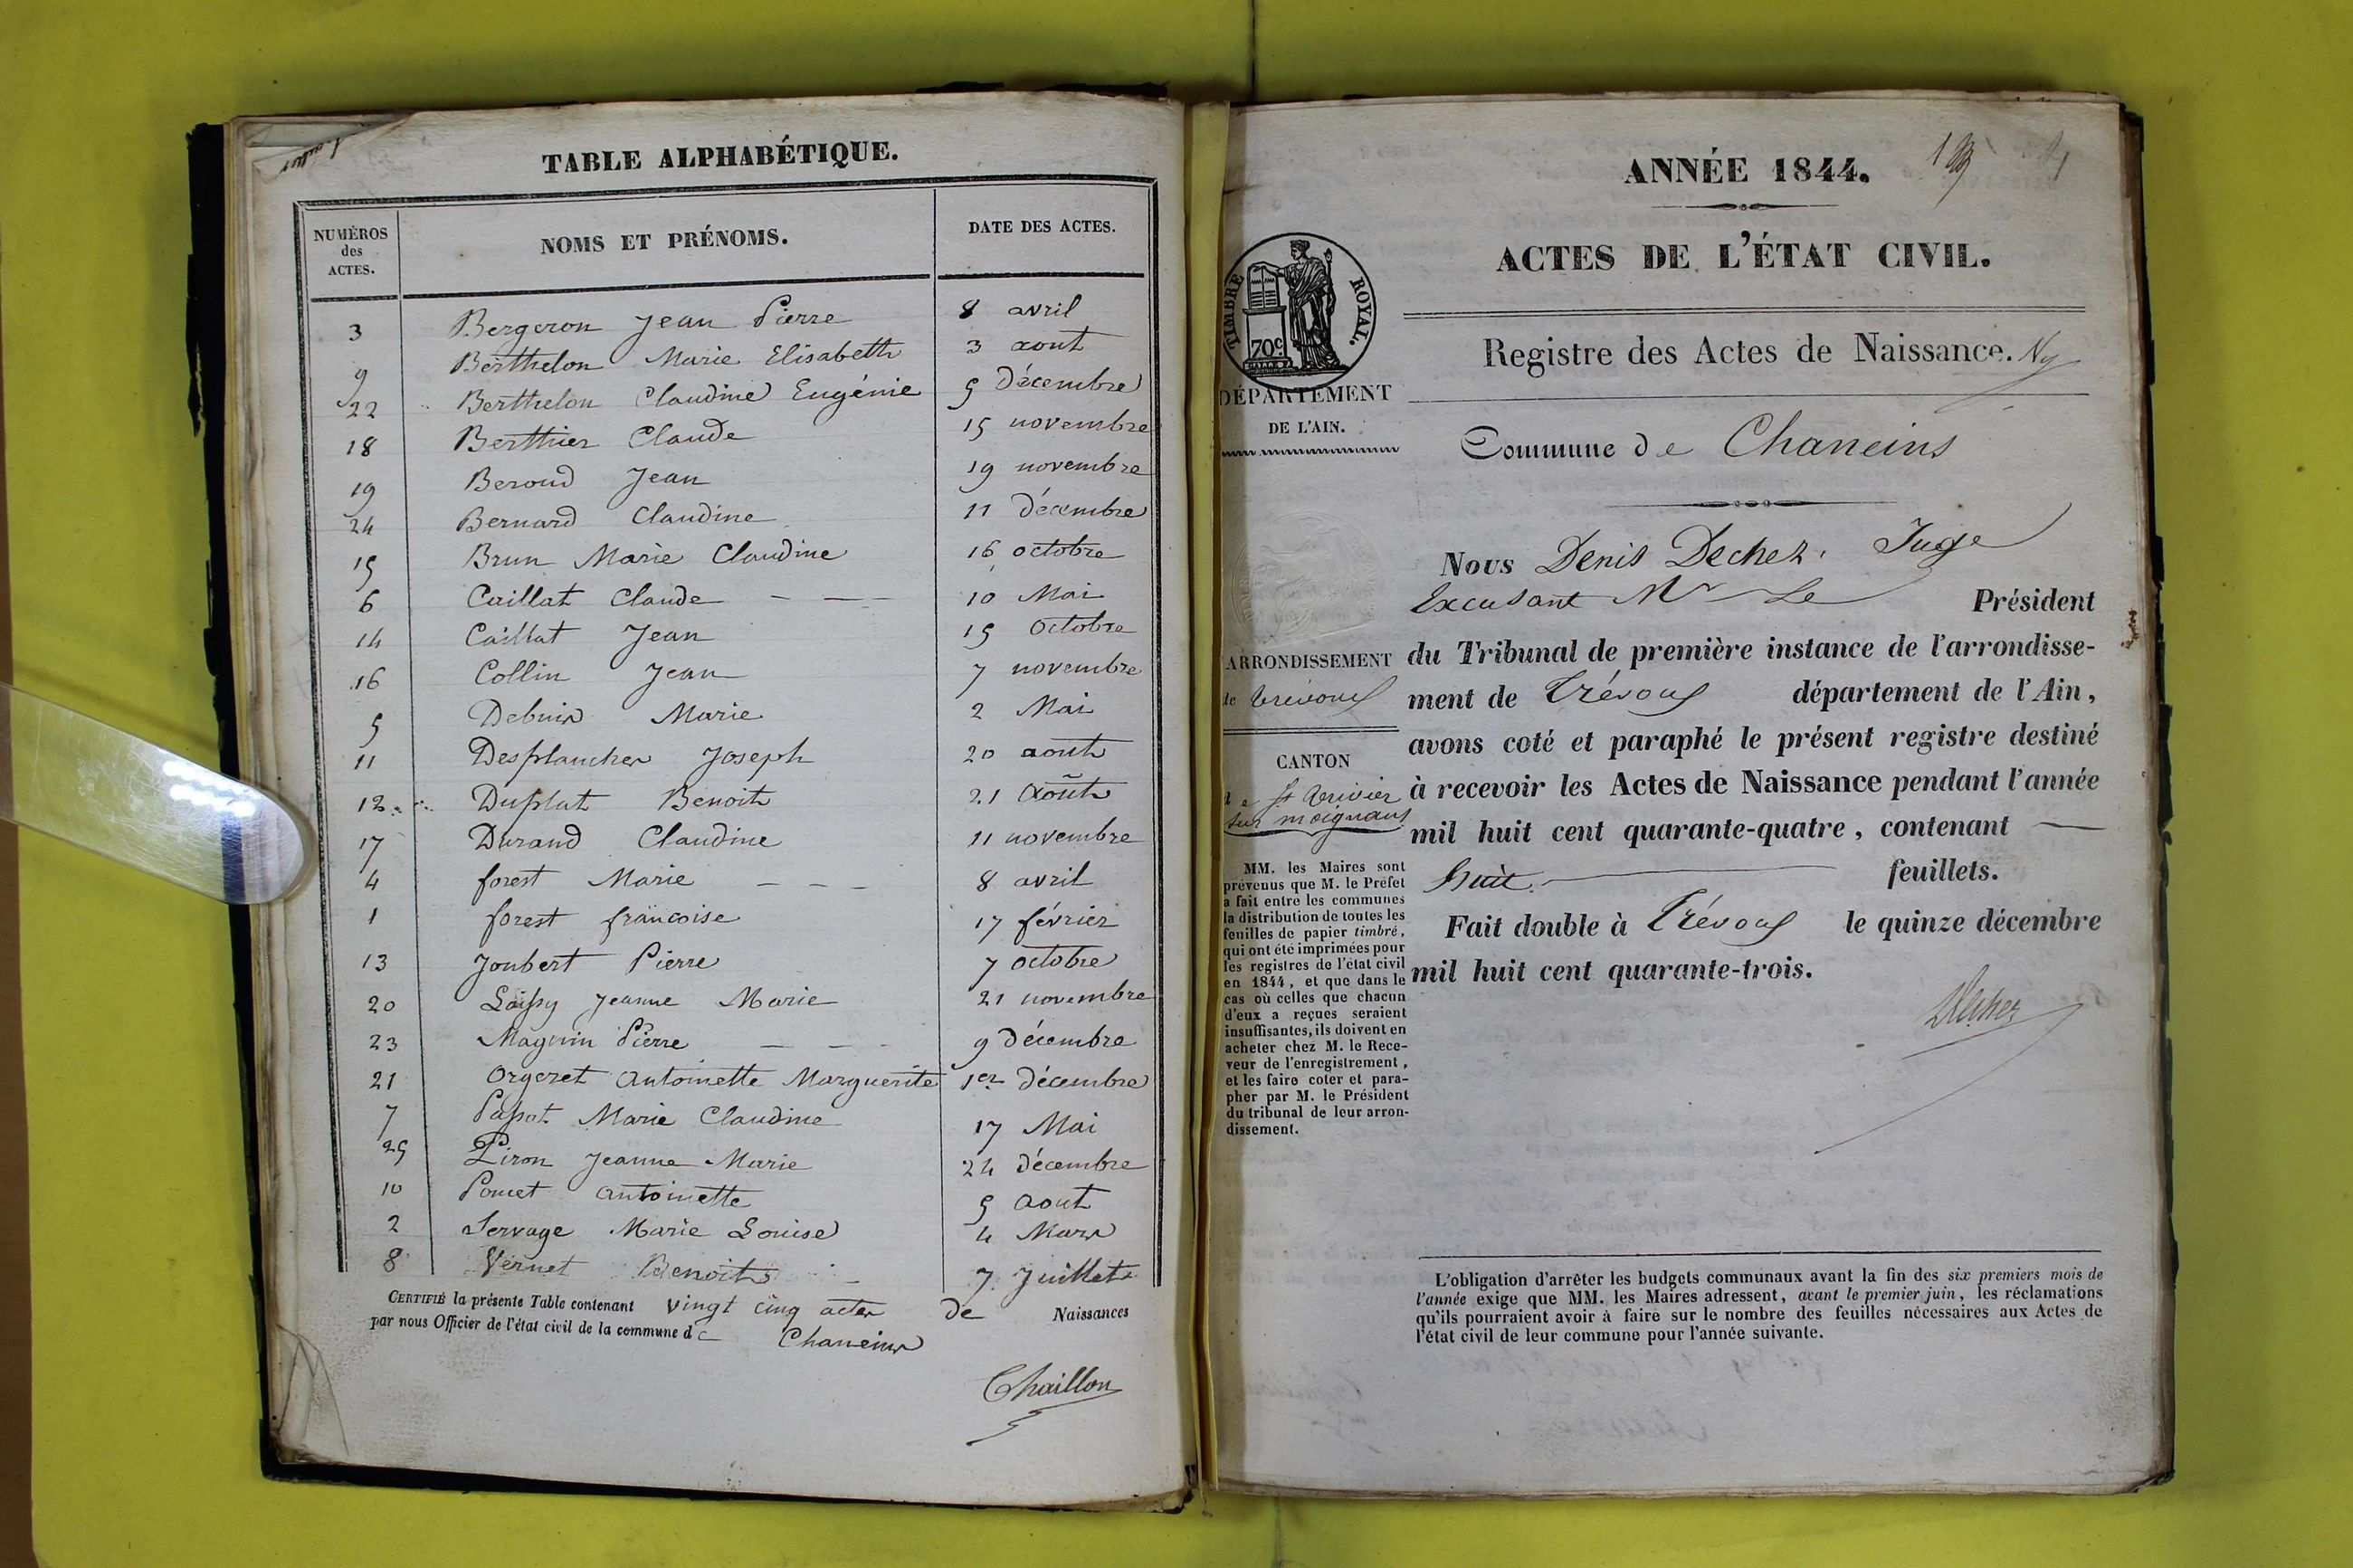 TABLE ALPHABÉTIQUE.
NUMÉROS des ACTES. NOMS ET PRÉNOMS. DATE DES ACTES.
3 Bergeron Jean Pierre 8 avril
9 Berthelon Marie Elisabeth 3 aout
22 Berthelon Claudine Eugénie 5 décembre
18 Berthier Claude 15 novembre
19 Beroud Jean 19 novembre
24 Bernard Claudine 11 décembre
15 Brun Marie Claudine 16 octobre
6 Caillat Claude 10 Mai
14 Caillat Jean 15 octobre
16 Collin Jean 7 novembre
5 Debuis Marie 2 Mai
11 Desplanches Joseph 20 aout
12 Duplat Benoit 21 Août
17 Durand Claudine 11 novembre
4 forest Marie 8 avril
1 forest françoise 17 février
13 Joubert Pierre 7 octobre
20 Laissy Jeanne Marie 21 novembre
23 Magnin Pierre 9 décembre
21 Orgeret Antoinette Marguerite 1er décembre
7 Passot Marie Claudine 17 Mai
25 Piron Jeanne Marie 24 décembre
10 Poncet antoinette 5 aout
2 Servage Marie Louise 4 Mars
8 Vernet Benoit 7 Juillet
CERTIFIÉ la présente Table contenant vingt cinq actes de Naissances
par nous Officier de l'état civil de la commune de Chaneins
Chaillon
ANNÉE 1844.
ACTES DE L'ÉTAT CIVIL.
TIMBRE ROYAL.
70c
Registre des Actes de Naissance.
DÉPARTEMENT
DE L'AIN.
Commune de Chaneins
Nous Denis Dechez, Juge
Excusant Mr Le Président
du Tribunal de première instance de l'arrondisse-
ment de Trévoux département de l'Ain,
avons coté et paraphé le présent registre destiné
à recevoir les Actes de Naissance pendant l'année
mil huit cent quarante-quatre, contenant
huit feuillets.
Fait double à Trévoux le quinze décembre
mil huit cent quarante-trois.
Dechez
ARRONDISSEMENT
de Trévoux
CANTON
de St Trivier
sur moignans
MM. les Maires sont
prévenus que M. le Préfet
a fait entre les communes
la distribution de toutes les
feuilles de papier timbré,
qui ont été imprimées pour
les registres de l'état civil
en 1844, et que dans le
cas où celles que chacun
d'eux a reçues seraient
insuffisantes, ils doivent en
acheter chez M. le Rece-
veur de l'enregistrement,
et les faire coter et para-
pher par M. le Président
du tribunal de leur arron-
dissement.
L'obligation d'arrêter les budgets communaux avant la fin des six premiers mois de
l'année exige que MM. les Maires adressent, avant le premier juin, les réclamations
qu'ils pourraient avoir à faire sur le nombre des feuilles nécessaires aux Actes de
l'état civil de leur commune pour l'année suivante.